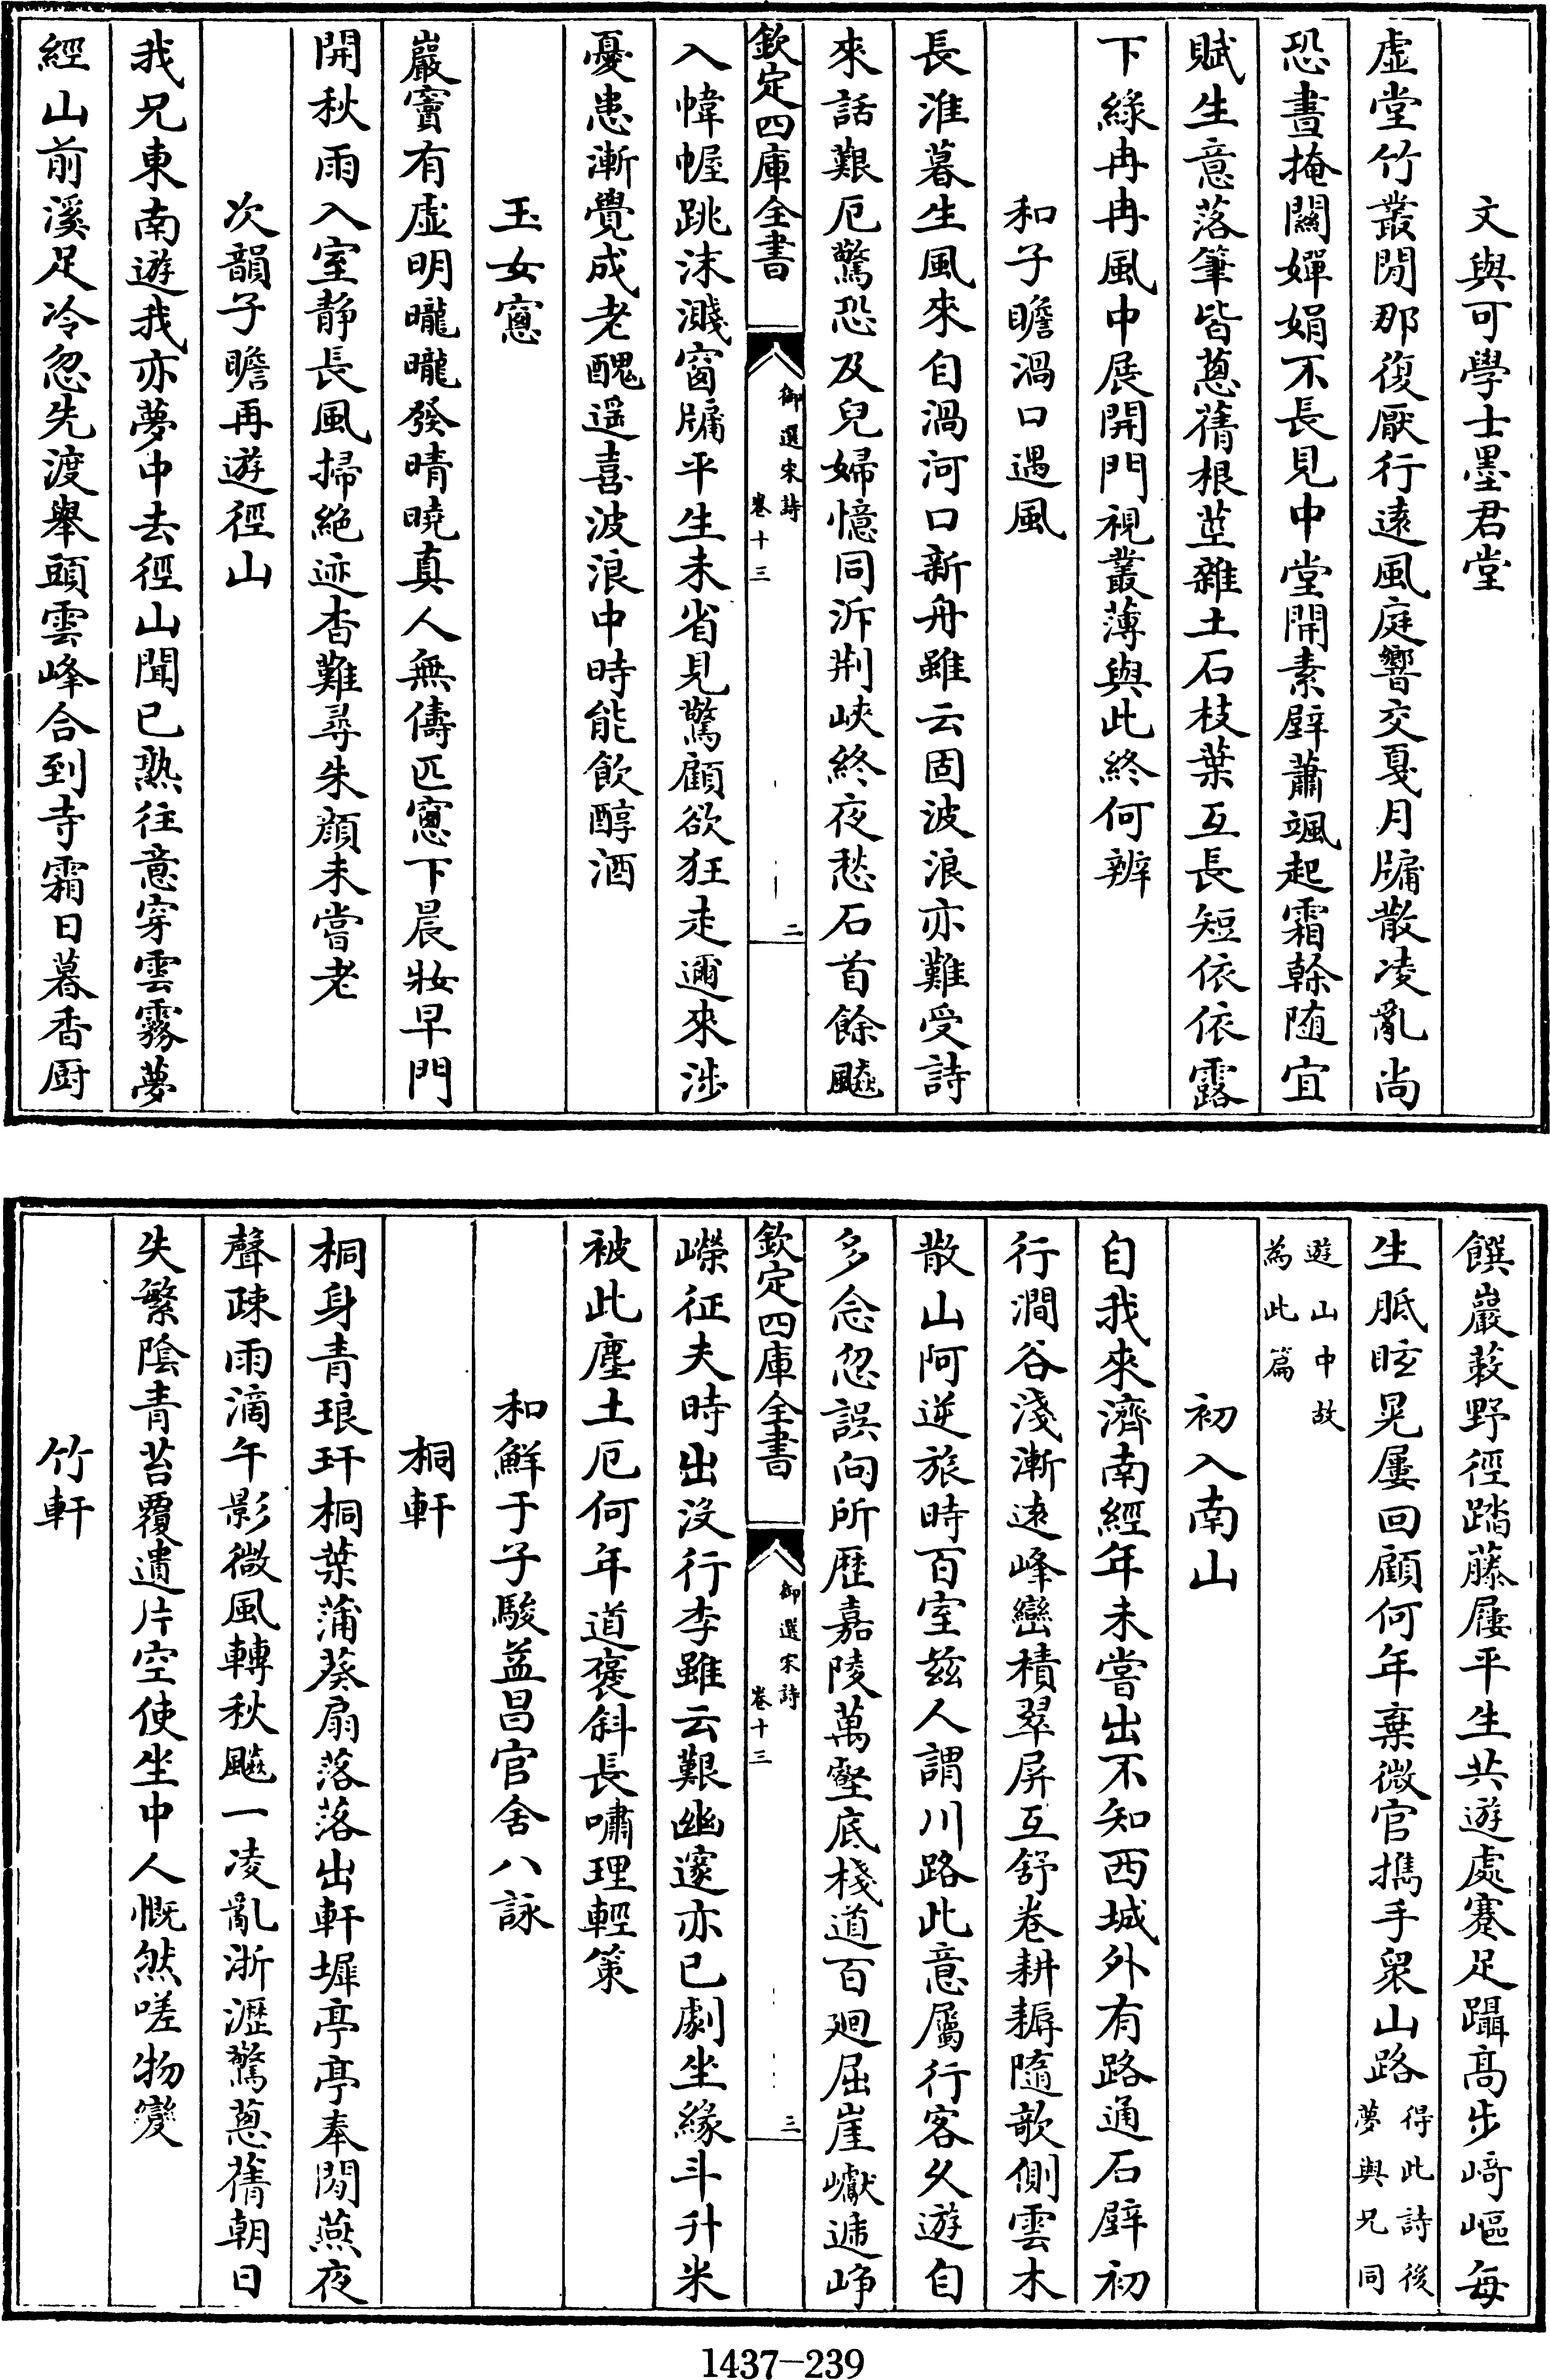 文與可學士墨君堂
虛堂竹叢閒那復厭行遠風庭響交戛月牖散凌亂尚
恐晝掩關嬋娟不長見中堂開素壁蕭颯起霜榦隨宜
賦生意落筆皆蔥蒨根莖雜土石枝葉互長短依依露
下綠冉冉風中展開門視叢薄與此終何辨
和子瞻渦口遇風
長淮暮生風來自渦河口新舟雖云固波浪亦難受詩
來話艱厄驚恐及兒婦憶同泝荆峽終夜愁石首餘飈
欽定四庫全書
御選宋詩
卷十三
二
入幃幄跳沫濺窗牖平生未省見驚顧欲狂走邇來涉
憂患漸覺成老醜遥喜波浪中時能飲醇酒
玉女窻
巖竇有虛明曨曨發晴曉真人無儔匹窻下晨妝早門
開秋雨入室静長風掃絶迹杳難尋朱顔未嘗老
次韻子瞻再遊徑山
我兄東南遊我亦夢中去徑山聞已熟往意穿雲霧夢
經山前溪足冷忽先渡舉頭雲峰合到寺霜日暮香厨
饌巖蔌野徑踏藤屨平生共遊處蹇足躡高步﨑嶇每
生胝眩晃屢回顧何年棄微官擕手衆山路
得此詩後
夢與兄同
遊山中故
為此篇
初入南山
自我來濟南經年未嘗出不知西城外有路通石壁初
行澗谷淺漸遠峰巒積翠屏互舒卷耕耨隨欹側雲木
散山阿逆旅時百室兹人謂川路此意屬行客久遊自
多念忽誤向所歴嘉陵萬壑底棧道百廻屈崖巘遞崢
欽定四庫全書
御選宋詩
卷十三
三
嶸征夫時出沒行李雖云艱幽邃亦已劇坐緣斗升米
被此塵土厄何年道褒斜長嘯理輕策
和鮮于子駿益昌官舍八詠
桐軒
桐身青琅玕桐葉蒲葵扇落落出軒墀亭亭奉閒燕夜
聲疎雨滴午影微風轉秋飈一凌亂淅瀝驚蔥蒨朝日
失繁陰青苔覆遺片空使坐中人慨然嗟物變
竹軒
1437-239